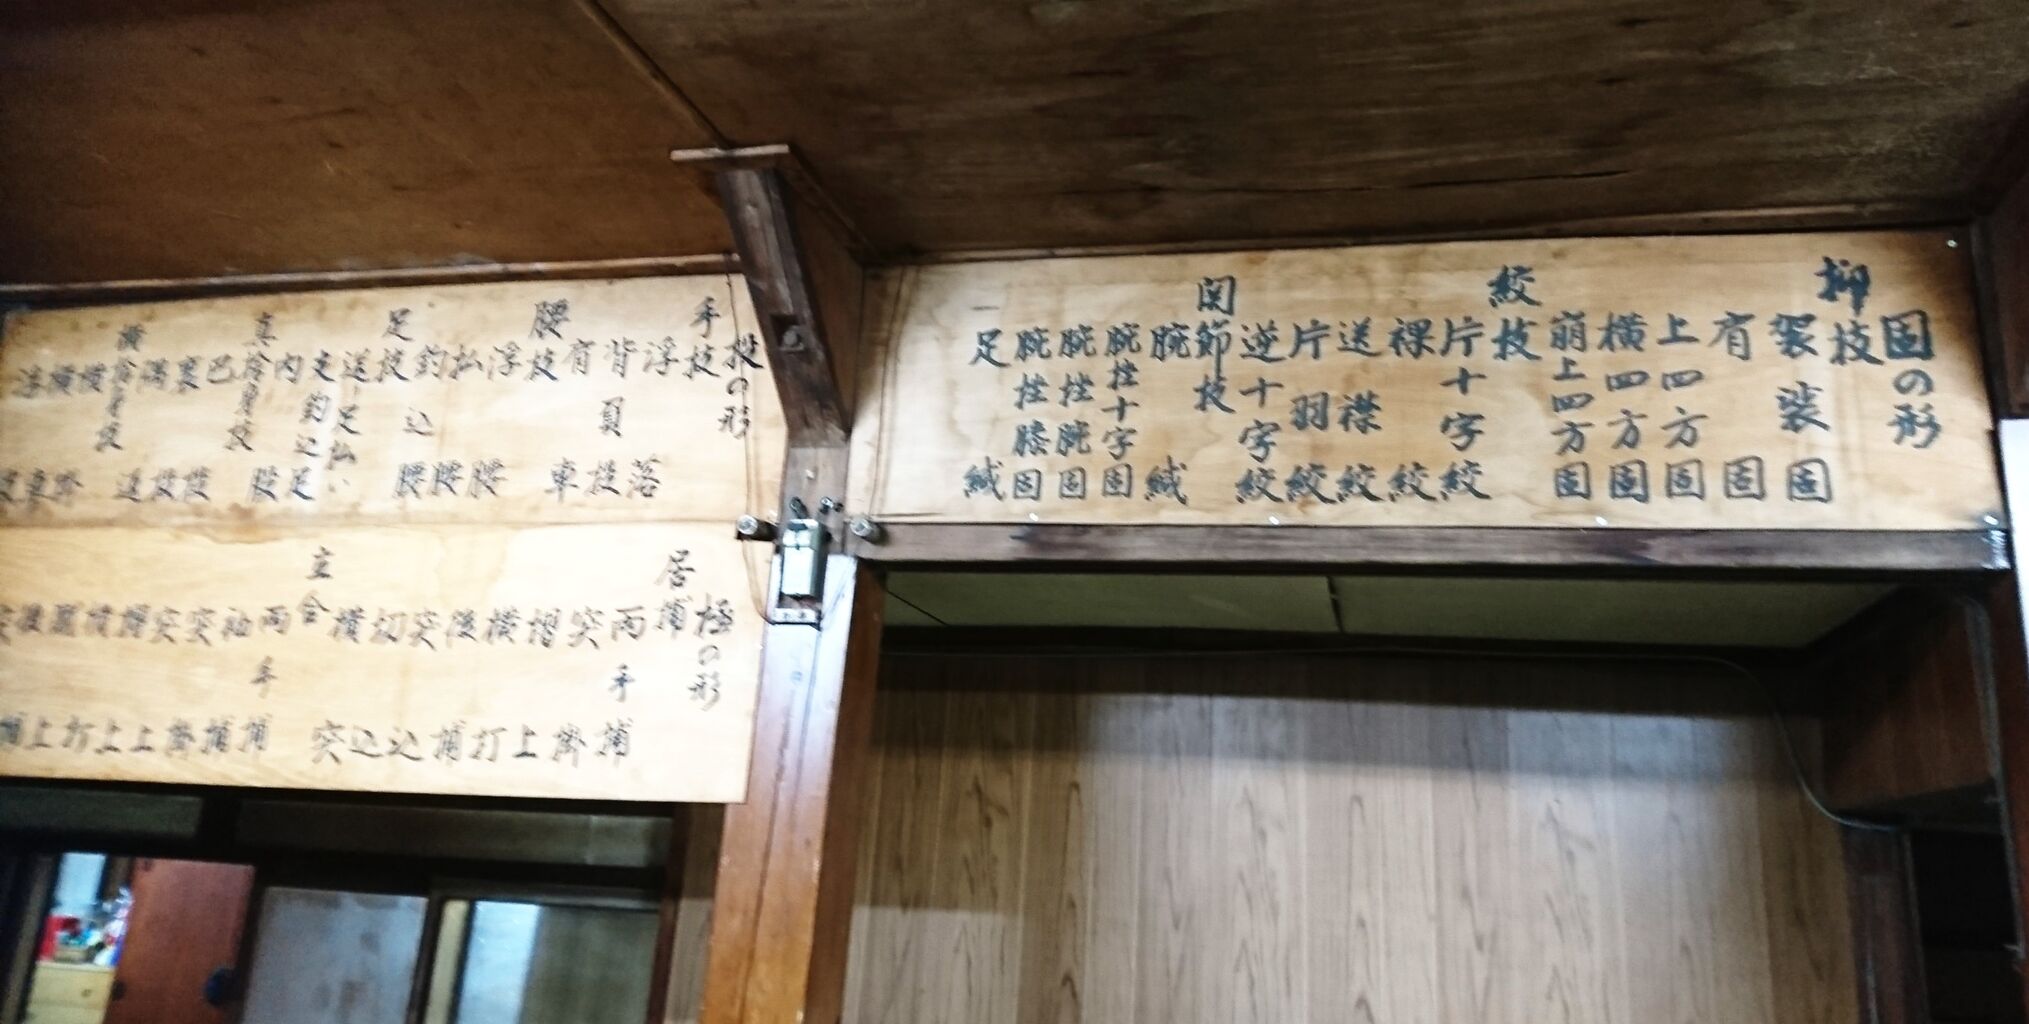 固の形
抑技
袈裟固
肩固
上四方固
横四方固
崩上四方固
絞技
片十字絞
裸絞
送襟絞
片羽絞
逆十字絞
関節技
腕緘
腕挫十字固
腕挫腕固
腕挫膝固
足緘
投の形
手技
浮落
背負投
肩車
腰技
浮腰
払腰
釣込腰
足技
送足払い
支釣込足
内股
真捨身技
巴投
裏投
隅返
横捨身技
横掛
横車
浮技
極の形
居捕
両手捕
突掛
摺上
横打
後捕
突込
切込
横突
立合
両手捕
袖捕
突掛
突上
摺上
横打
蹴上
後捕